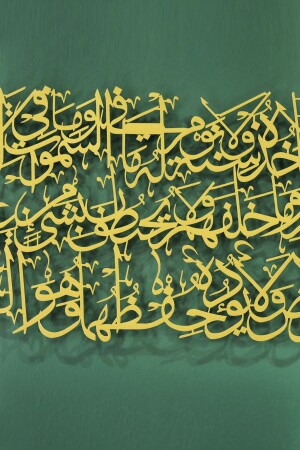 خذه سنة ولا نوم له ما في السموت وما في
وما خلفهم ولا يحيطون بشئ من
ض ولا يؤده حفظهما وهو ال